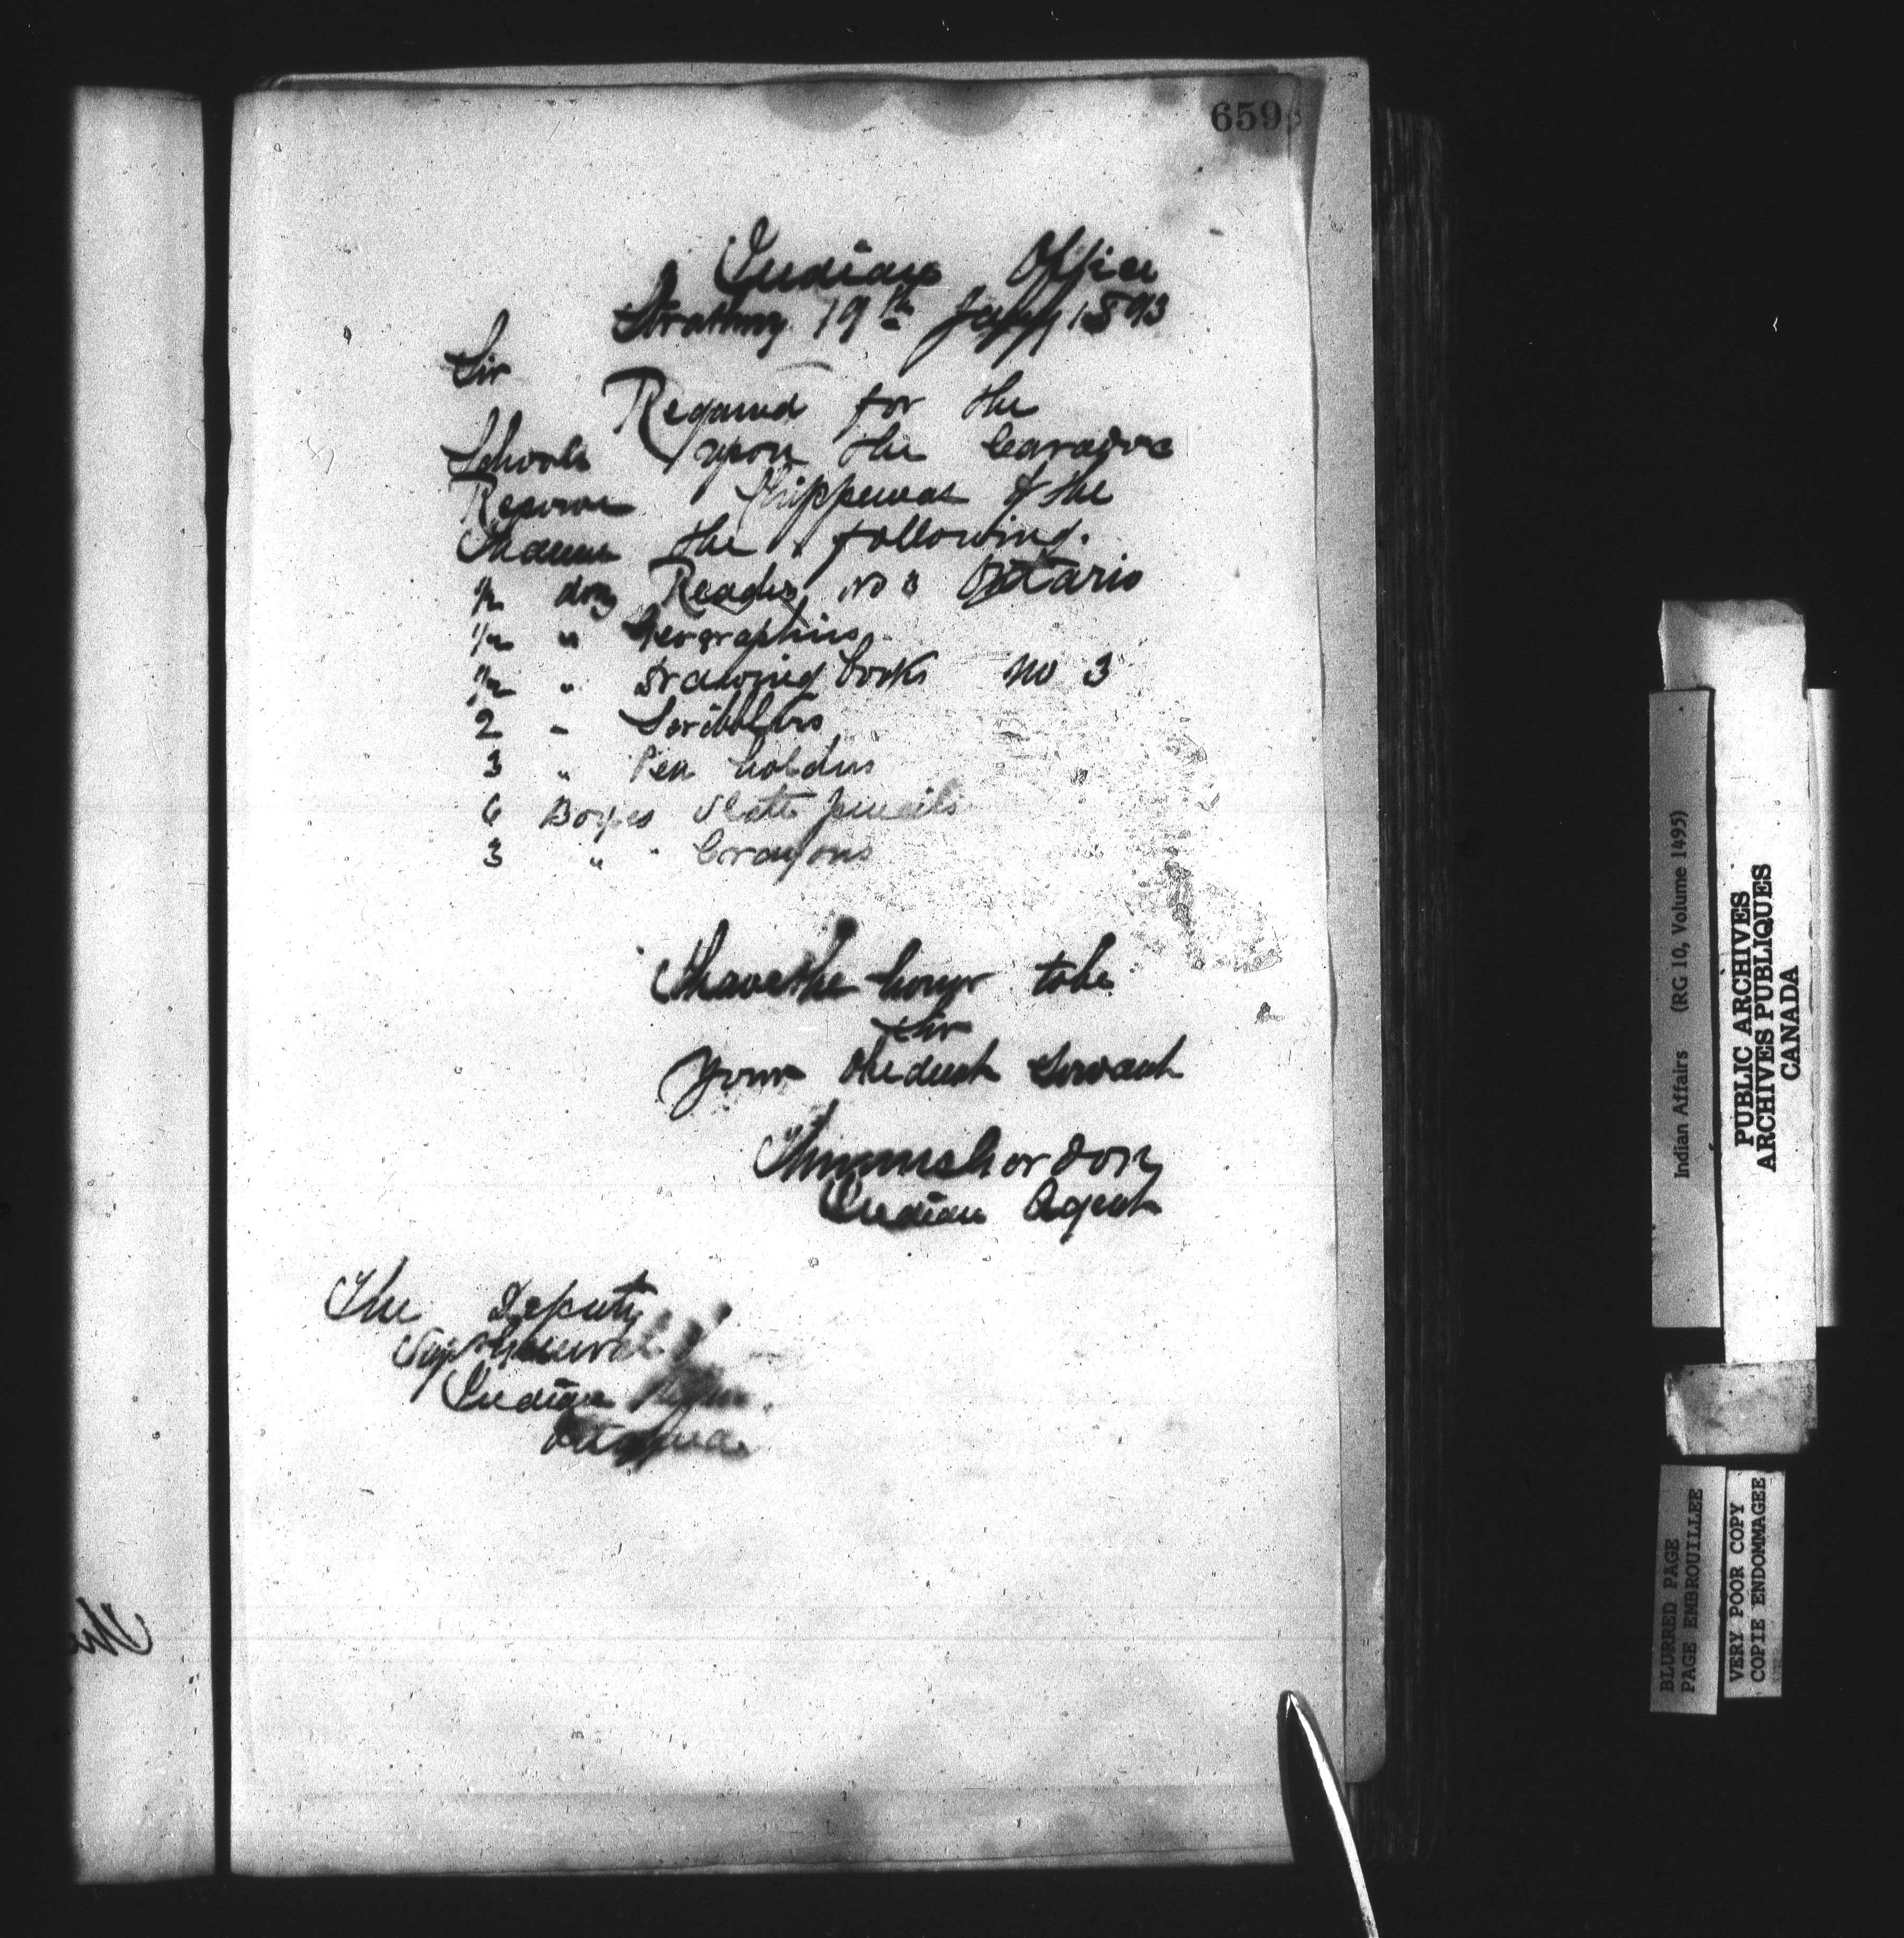 659
Indian Office
Strathroy 19th Jany 1893
Sir
Required for the
Schools upon the Caradoc
Reserve Chippewas of the
Thames the following.
1/2 doz Readers No 3 Ontario
1/2 " Geographies
1/2 " Drawing books No 3
2 " Scribblers
3 " Pen holders
6 Boxes Slate pencils
3 " " Crayons
I have the honor to be
Sir
Your Obedient Servant
Thomas Gordon
Indian Agent
The Deputy
Supt General of
Indian Affairs
Ottawa
Indian Affairs (RG 10, Volume 1495)
PUBLIC ARCHIVES
ARCHIVES PUBLIQUES
CANADA
BLURRED PAGE
PAGE EMBROUILLEE
VERY POOR COPY
COPIE ENDOMMAGEE